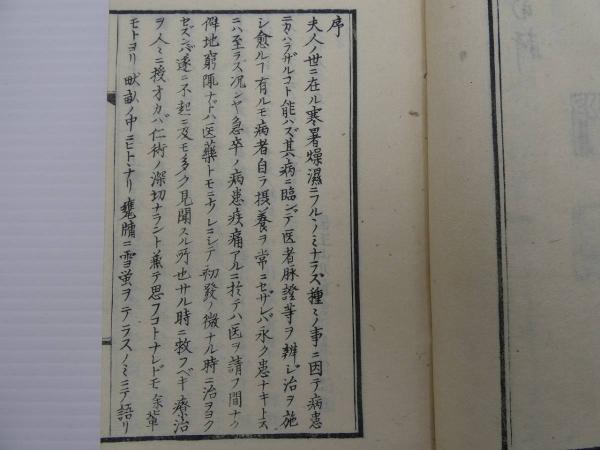 序
夫人ノ世ニ在ル寒暑燥濕ニフルヽノミナラズ種〻ノ事ニ因テ病患
ニカヽラザルコト能ハズ其病ニ臨ンデ医者脉證等ヲ辨ジ治ヲ施
シ愈ルヿ有ルモ病者自ラ摂養ヲ常ニセザレバ永ク患ナキトス
ニハ至ラズ况ンヤ急卒ノ病患疾痛アルニ於テハ医ヲ請フ間ナク
僻地窮陬ナドハ医藥トモニ
レニシテ初發ノ微ナル時ニ治ヲヨク
セズ
遂ニ不起ニ及モ多ク見聞スル所也サル時ニ救フベキ療治
ヲ人〻ニ授オカバ仁術ノ深切ナラント兼テ思フコトナレドモ余輩
モトヨリ畎畝ノ中ニヒトヽナリ甕牖ニ雪蛍ヲテラスノミニテ語リ